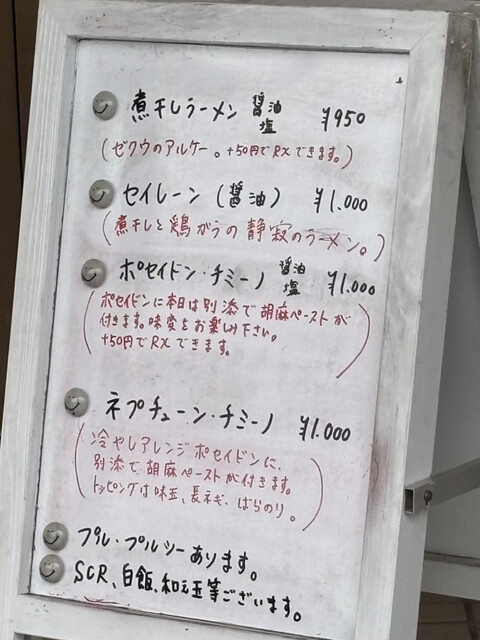 煮干しラーメン 醤油 塩 ¥950
(ゼクウのアルケー。+50円でRXできます。)
セイレーン(醤油) ¥1.000
(煮干しと鶏ガラの静寂のラーメン。)
ポセイドン・チミーノ 醤油 塩 ¥1.000
(ポセイドンに本日は別添で胡麻ペーストが
付きます。味変をお楽しみ下さい。
+50円でRXできます。)
ネプチューン・チミーノ ¥1.000
(冷やしアレンジポセイドンに、
別添で胡麻ペーストが付きます。
トッピングは味玉、長ネギ、ばらのり。)
フタル・プルシーあります。
SCR、白飯、和え玉等ございます。